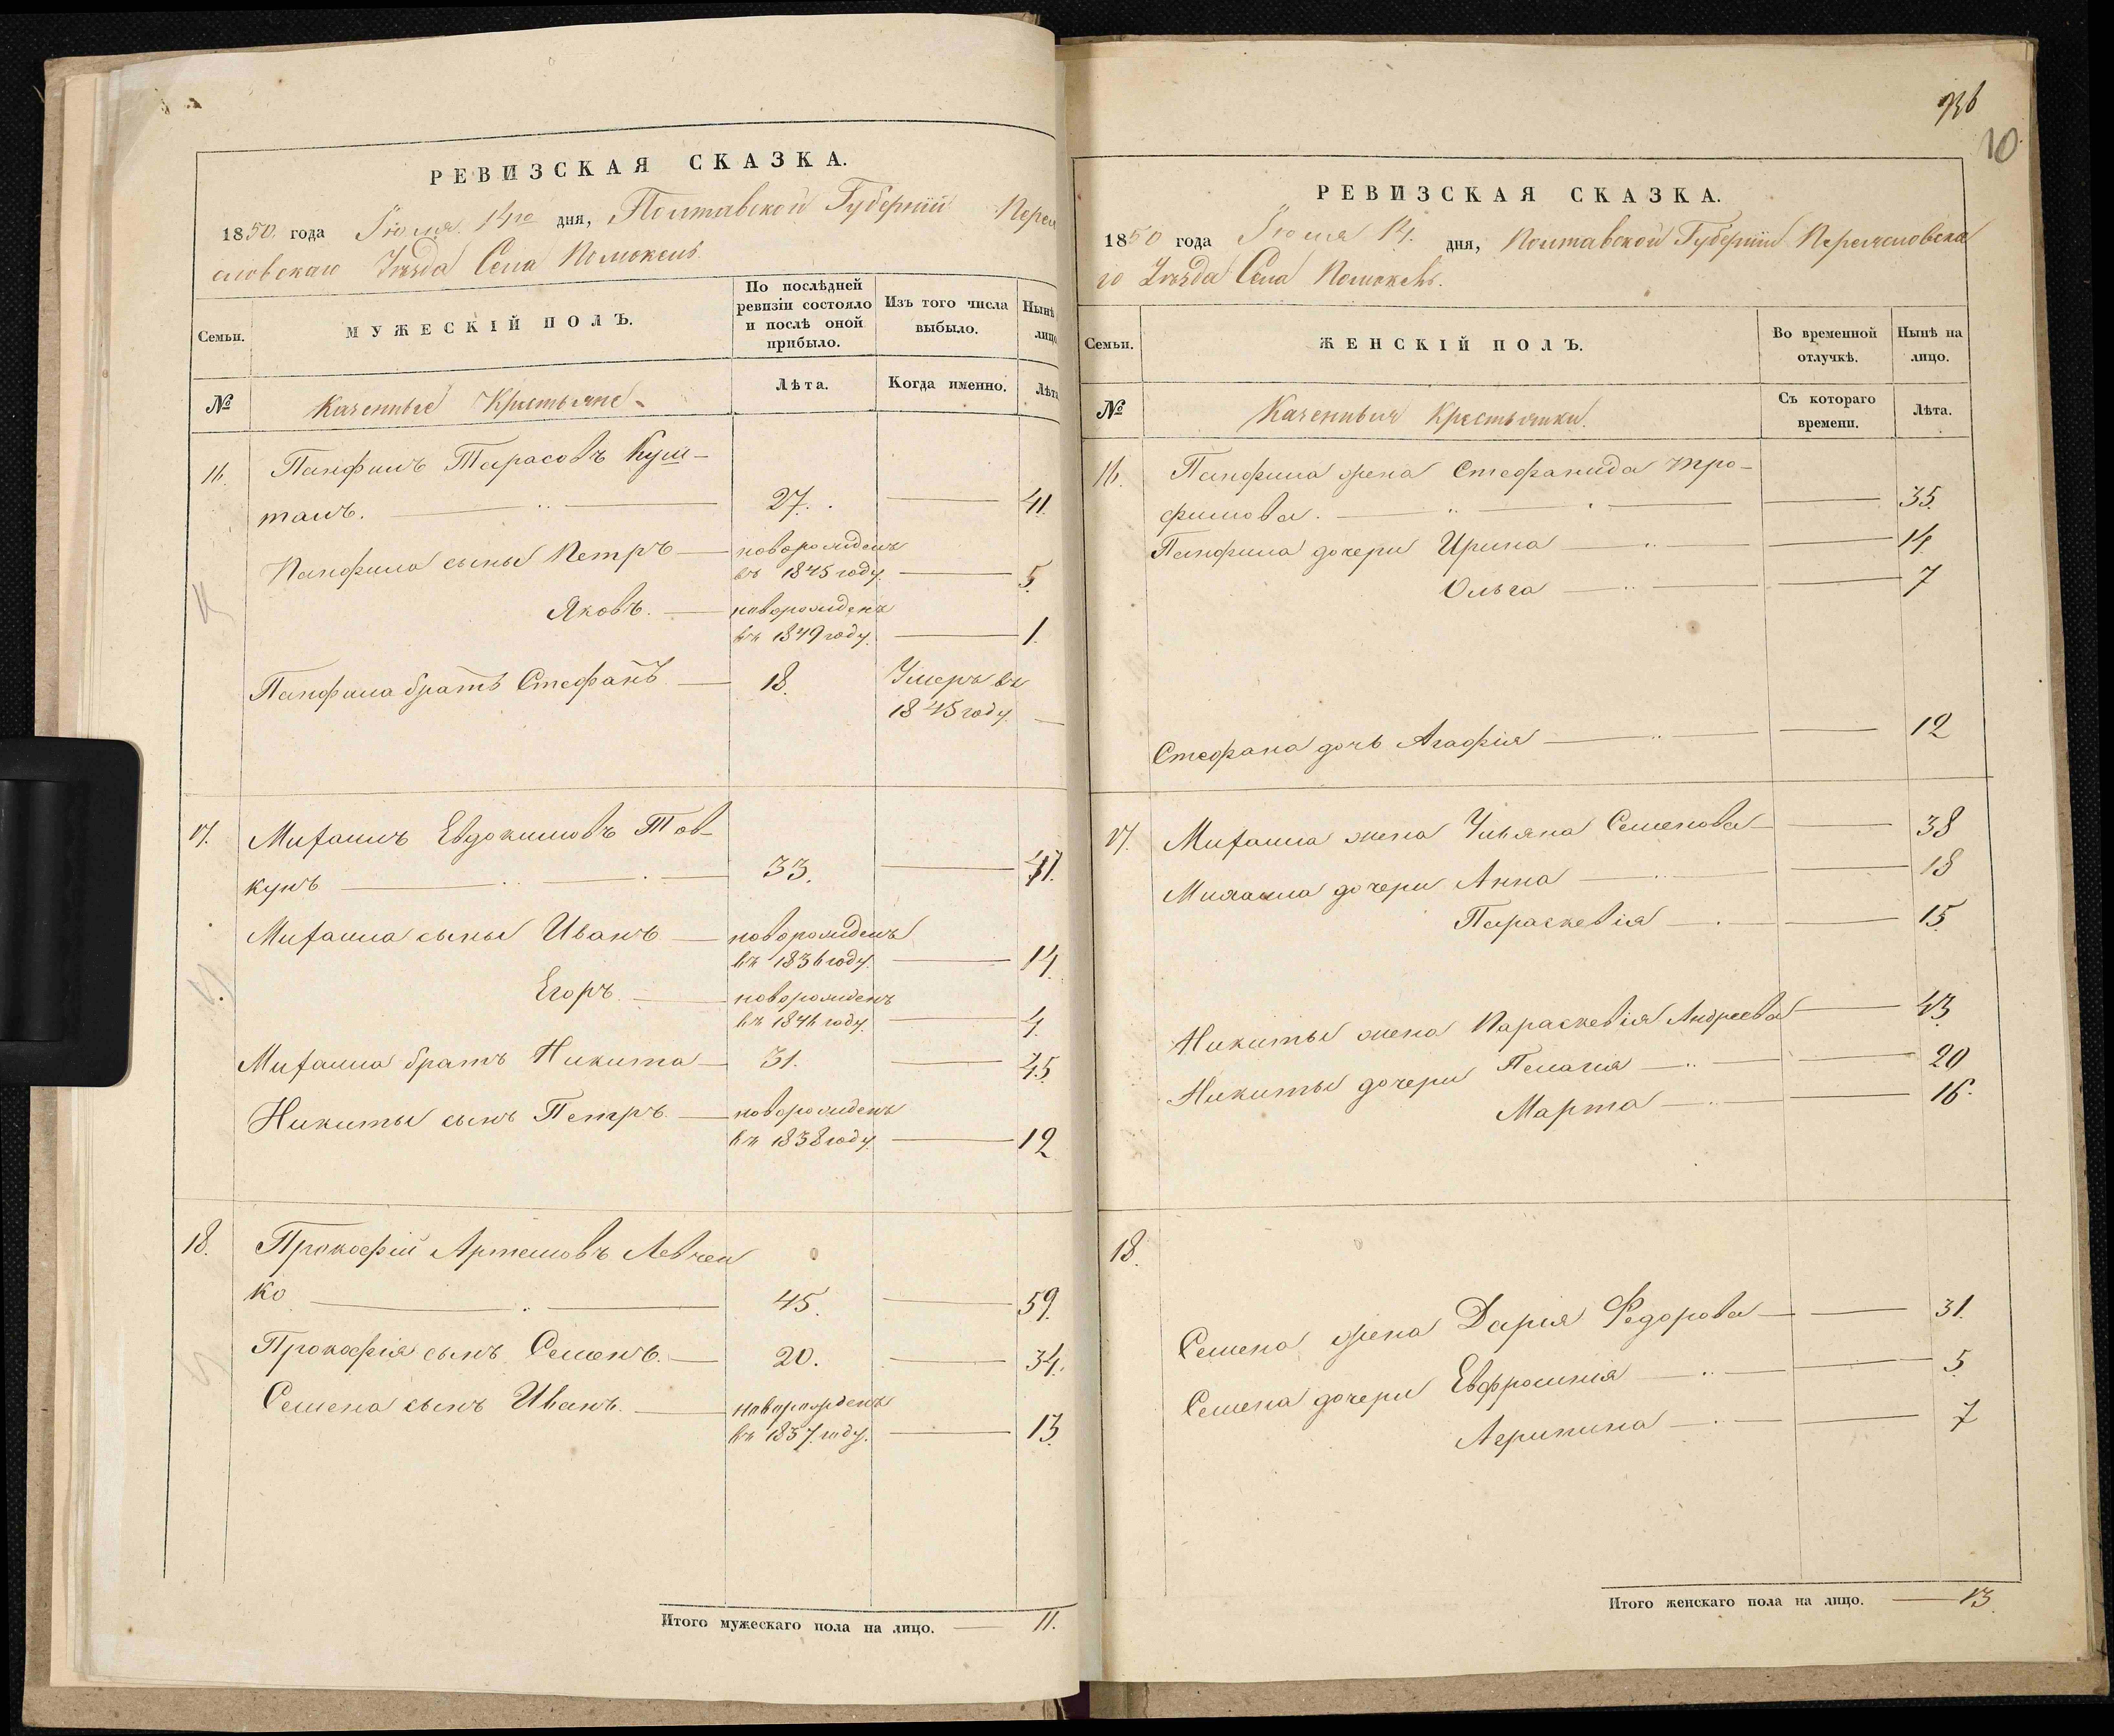 РЕВИЗСКАЯ СКАЗКА.
1850. года Іюля 14го дня, Полтавской Губерніи Перея
словскаго Уѣзда Села Помоклень
Семьи.
МУЖЕСКІЙ ПОЛЪ.
По послѣдней ревизіи состояло и послѣ оной прибыло.
Изъ того числа выбыло.
Нынѣ
лицо
№
Казенные Крестьяне
Лѣта.
Когда именно.
Лѣта
16. Панфилъ Тарасовъ Куш-
таль. 27. 41.
Панфила сыны Петръ новорожденъ
въ 1845 году. 5.
Яковъ. новорожденъ
въ 1849 году. 1.
Панфила братъ Стефанъ 18. Умеръ въ
1845 году.
17. Михаилъ Евдокимовъ Тов-
кунъ 33. 47.
Михаила сыны Иванъ новорожденъ
въ 1836 году. 14.
Егоръ новорожденъ
въ 1846 году. 4.
Михаила братъ Никита 31. 45.
Никиты сынъ Петръ новорожденъ
въ 1838 году. 12
18. Прокофій Артемовъ Левчен
ко 45. 59.
Прокофія сынъ Семенъ. 20. 34.
Семена сынъ Иванъ. новорожденъ
въ 1837. году. 13.
Итого мужескаго пола на лицо. 11.
936
10
РЕВИЗСКАЯ СКАЗКА.
1850 года Іюля 14. дня, Полтавской Губерніи Переясловска
го Уѣзда Села Помоклень.
Семьи.
ЖЕНСКІЙ ПОЛЪ.
Во временной отлучкѣ.
Нынѣ на лицо.
№
Казенныя Крестьянки.
Съ котораго времени.
Лѣта.
16. Панфила жена Стефанида Тро-
фимова. 35.
Панфила дочери Ирина 14.
Ольга 7
Стефана дочь Агафія 12
17. Михаила жена Ульяна Семенова 38
Михаила дочери Анна 18
Параскевія 15.
Никиты жена Параскевія Андреева 43.
Никиты дочери Пелагія 20
Марта 16.
18.
Семена жена Дарія Федорова 31.
Семена дочери Евфросинія 5.
Агрипина 7
Итого женскаго пола на лицо. 13.